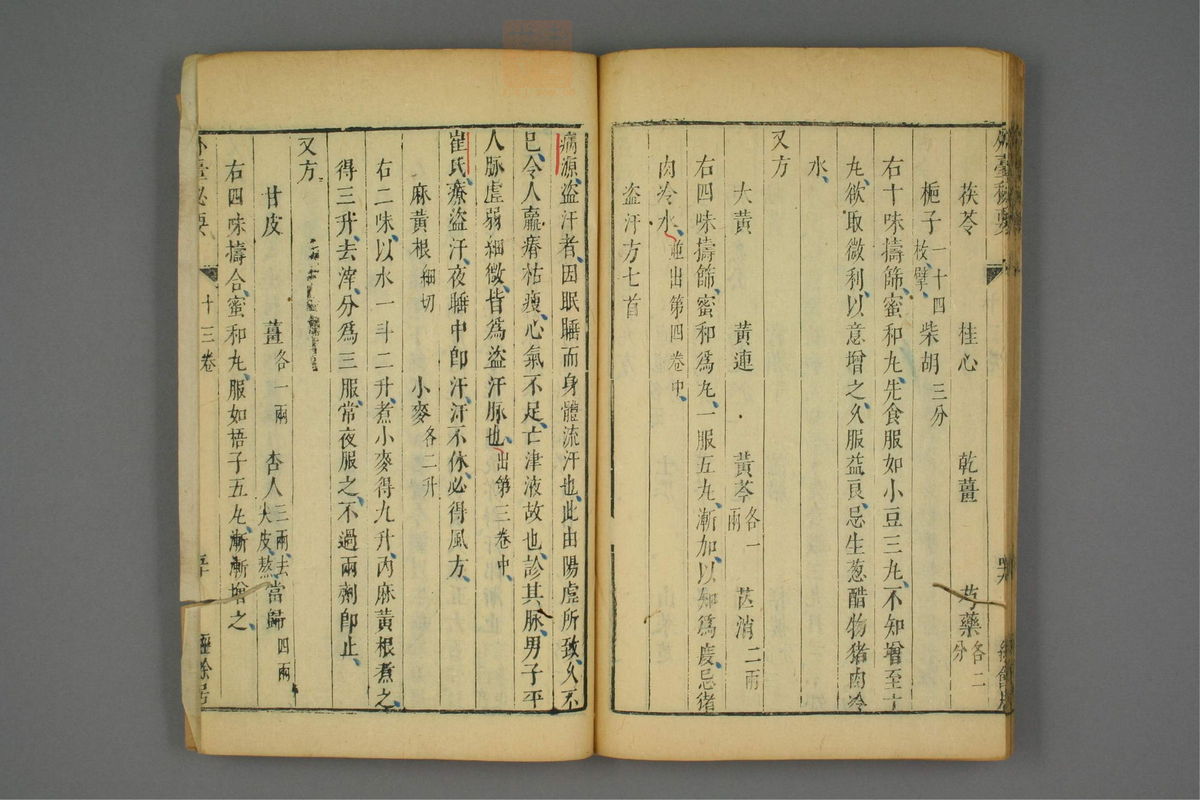 茯苓 桂心 乾薑 芍藥各二分
梔子一十四枚擘 柴胡三分
右十味擣篩蜜和丸先食服如小豆三丸不知增至十
丸欲取微利以意增之久服益良忌生葱醋物猪肉冷
水
又方
大黃 黃連 黃芩各一兩 芒消二兩
右四味擣篩蜜和爲丸一服五丸漸加以知爲度忌猪
肉冷水並出第四卷中
盜汗方七首
病源盜汗者因眠睡而身體流汗也此由陽虛所致久不
已令人羸瘠枯瘦心氣不足亡津液故也診其脉男子平
人脉虛弱細微皆爲盜汗脉也出第三卷中
崔氏療盜汗夜睡中即汗汗不休必得風方
麻黃根細切 小麥各二升
右二味以水一斗二升煮小麥得九升內麻黃根煮之
得三升去滓分爲三服常夜服之不過兩劑即止
又方
甘皮 薑各一兩 杏人三兩去大皮熬 當歸四兩
右四味擣合蜜和丸服如梧子五丸漸漸增之
外臺秘要 十三卷 經餘居